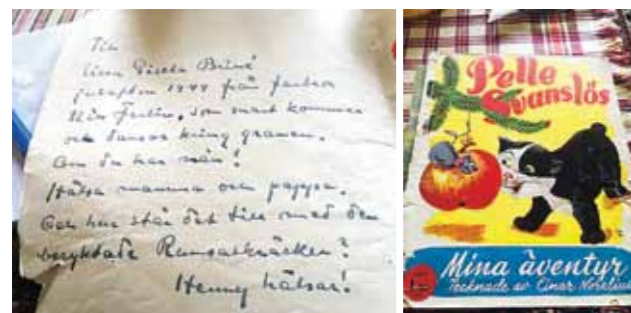 Till
lilla Gisela Briné
julafton 1944 från farbror
, som snart kommer
och dansar kring granen.
Om du har nån!
Hälsa mamma och pappa.
Och hur står det till med den
beryktade Ramsaskräcken?
Henny hälsar!
Pelle
Svanslös
Mina äventyr
Tecknade av Einar Norelius